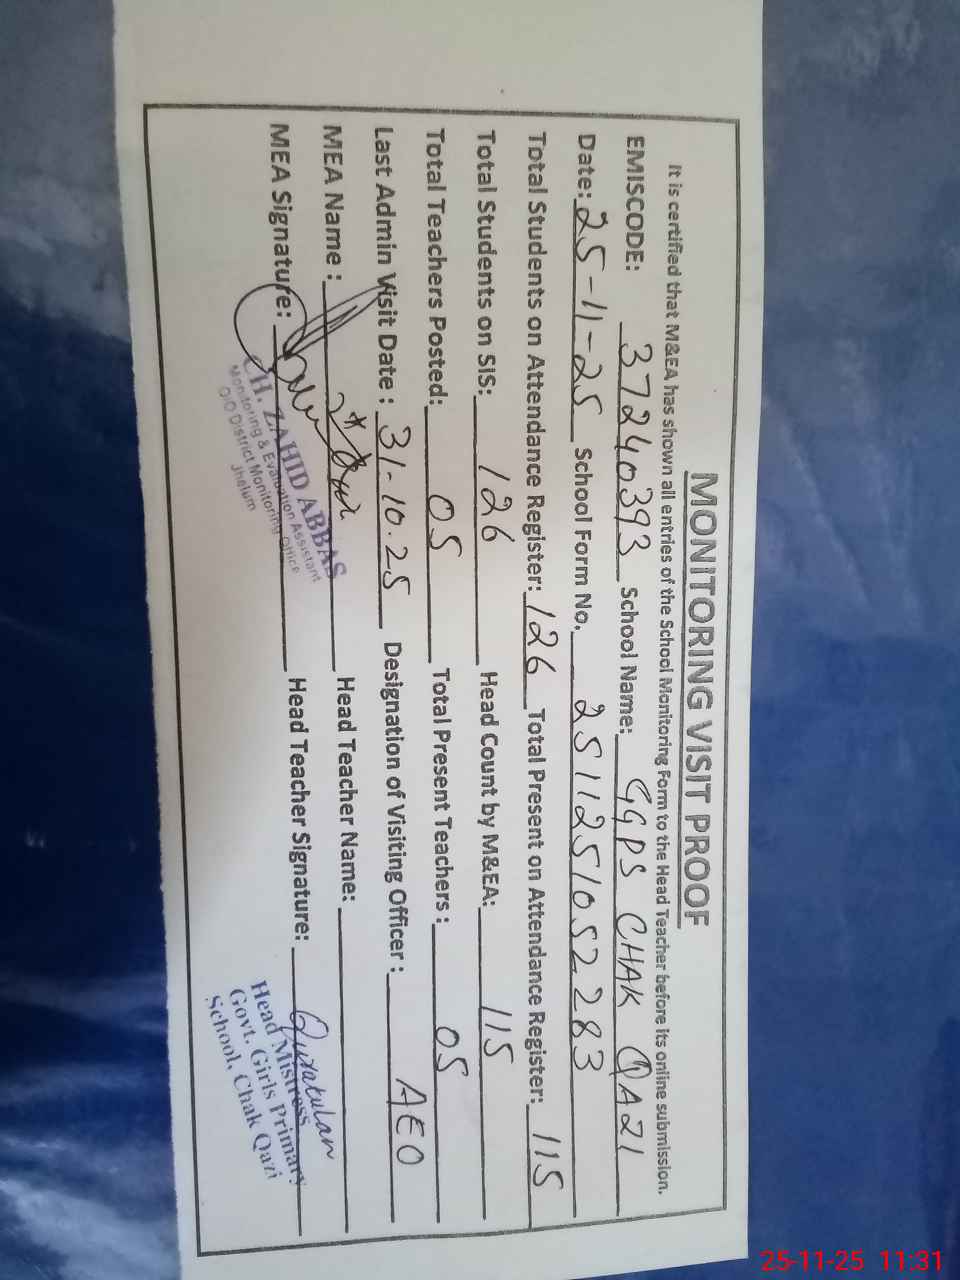 MONITORING VISIT PROOF
It is certified that M&EA has shown all entries of the School Monitoring Form to the Head Teacher before its online submission.
EMISCODE: 37240393 School Name: GGPS CHAK QAZI
Date: 25-11-25 School Form No. 2511251052283
Total Students on Attendance Register: 126 Total Present on Attendance Register: 115
Total Students on SIS: 126 Head Count by M&EA: 115
Total Teachers Posted: 05 Total Present Teachers: 05
Last Admin Visit Date: 31-10.25 Designation of Visiting Officer: AEO
MEA Name: Head Teacher Name:
MEA Signature: Head Teacher Signature: Quratulan
CH. ZAHID ABBAS
Monitoring & Evaluation Assistant
O/O District Monitoring Office
Jhelum
Head Mistress
Govt. Girls Primary
School, Chak Qazi
25-11-25 11:31